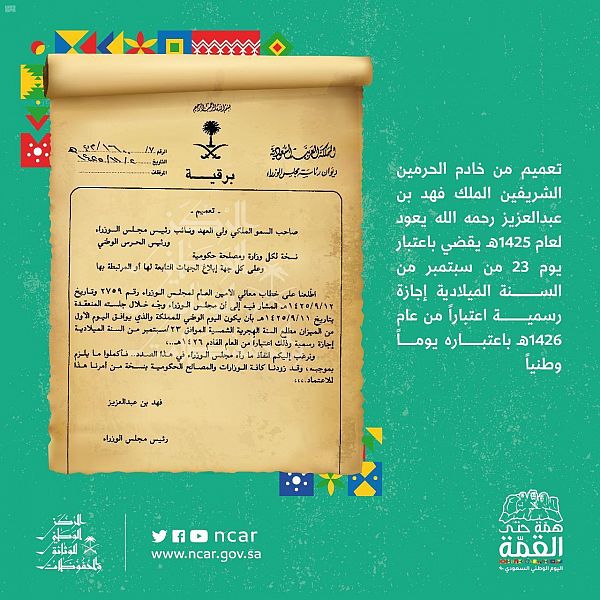 بسم الله الرحمن الرحيم
المملكة العربية السعودية
ديوان رئاسة مجلس الوزراء
برقية
الرقم
التاريخ
المرفقات
- تعميم -
صاحب السمو الملكي ولي العهد ونائب رئيس مجلس الوزراء
ورئيس الحرس الوطني
نسخة لكل وزارة ومصلحة حكومية
وعلى كل جهة إبلاغ الجهات التابعة لها أو المرتبطة بها
اطلعنا على خطاب معالي الأمين العام لمجلس الوزراء رقم ٢٧٥٩ وتاريخ
١٤٢٥/٩/١٢هـ المشار فيه إلى أن مجلس الوزراء وجّه خلال جلسته المنعقدة
بتاريخ ١٤٢٥/٩/١١هـ بأن يكون اليوم الوطني للمملكة والذي يوافق اليوم الأول
من الميزان مطلع السنة الهجرية الشمسية الموافق ٢٣/سبتمبر من السنة الميلادية
إجازة رسمية وذلك اعتباراً من العام القادم ١٤٢٦هـ...
ونرغب إليكم انفاذ ما رآه مجلس الوزراء في هذا الصدد.. فأكملوا ما يلزم
بموجبه، وقد زودنا كافة الوزارات والمصالح الحكومية بنسخة من أمرنا هذا
للاعتماد،،،
فهد بن عبدالعزيز
رئيس مجلس الوزراء
تعميم من خادم الحرمين
الشريفين الملك فهد بن
عبدالعزيز رحمه الله يعود
لعام 1425هـ يقضي باعتبار
يوم 23 من سبتمبر من
السنة الميلادية إجازة
رسمية اعتباراً من عام
1426هـ باعتباره يوماً
وطنياً
المركز
الوطني
للوثائق
والمحفوظات
ncar
www.ncar.gov.sa
همّة حتى
القمّة
اليوم الوطني السعودي ٩٠